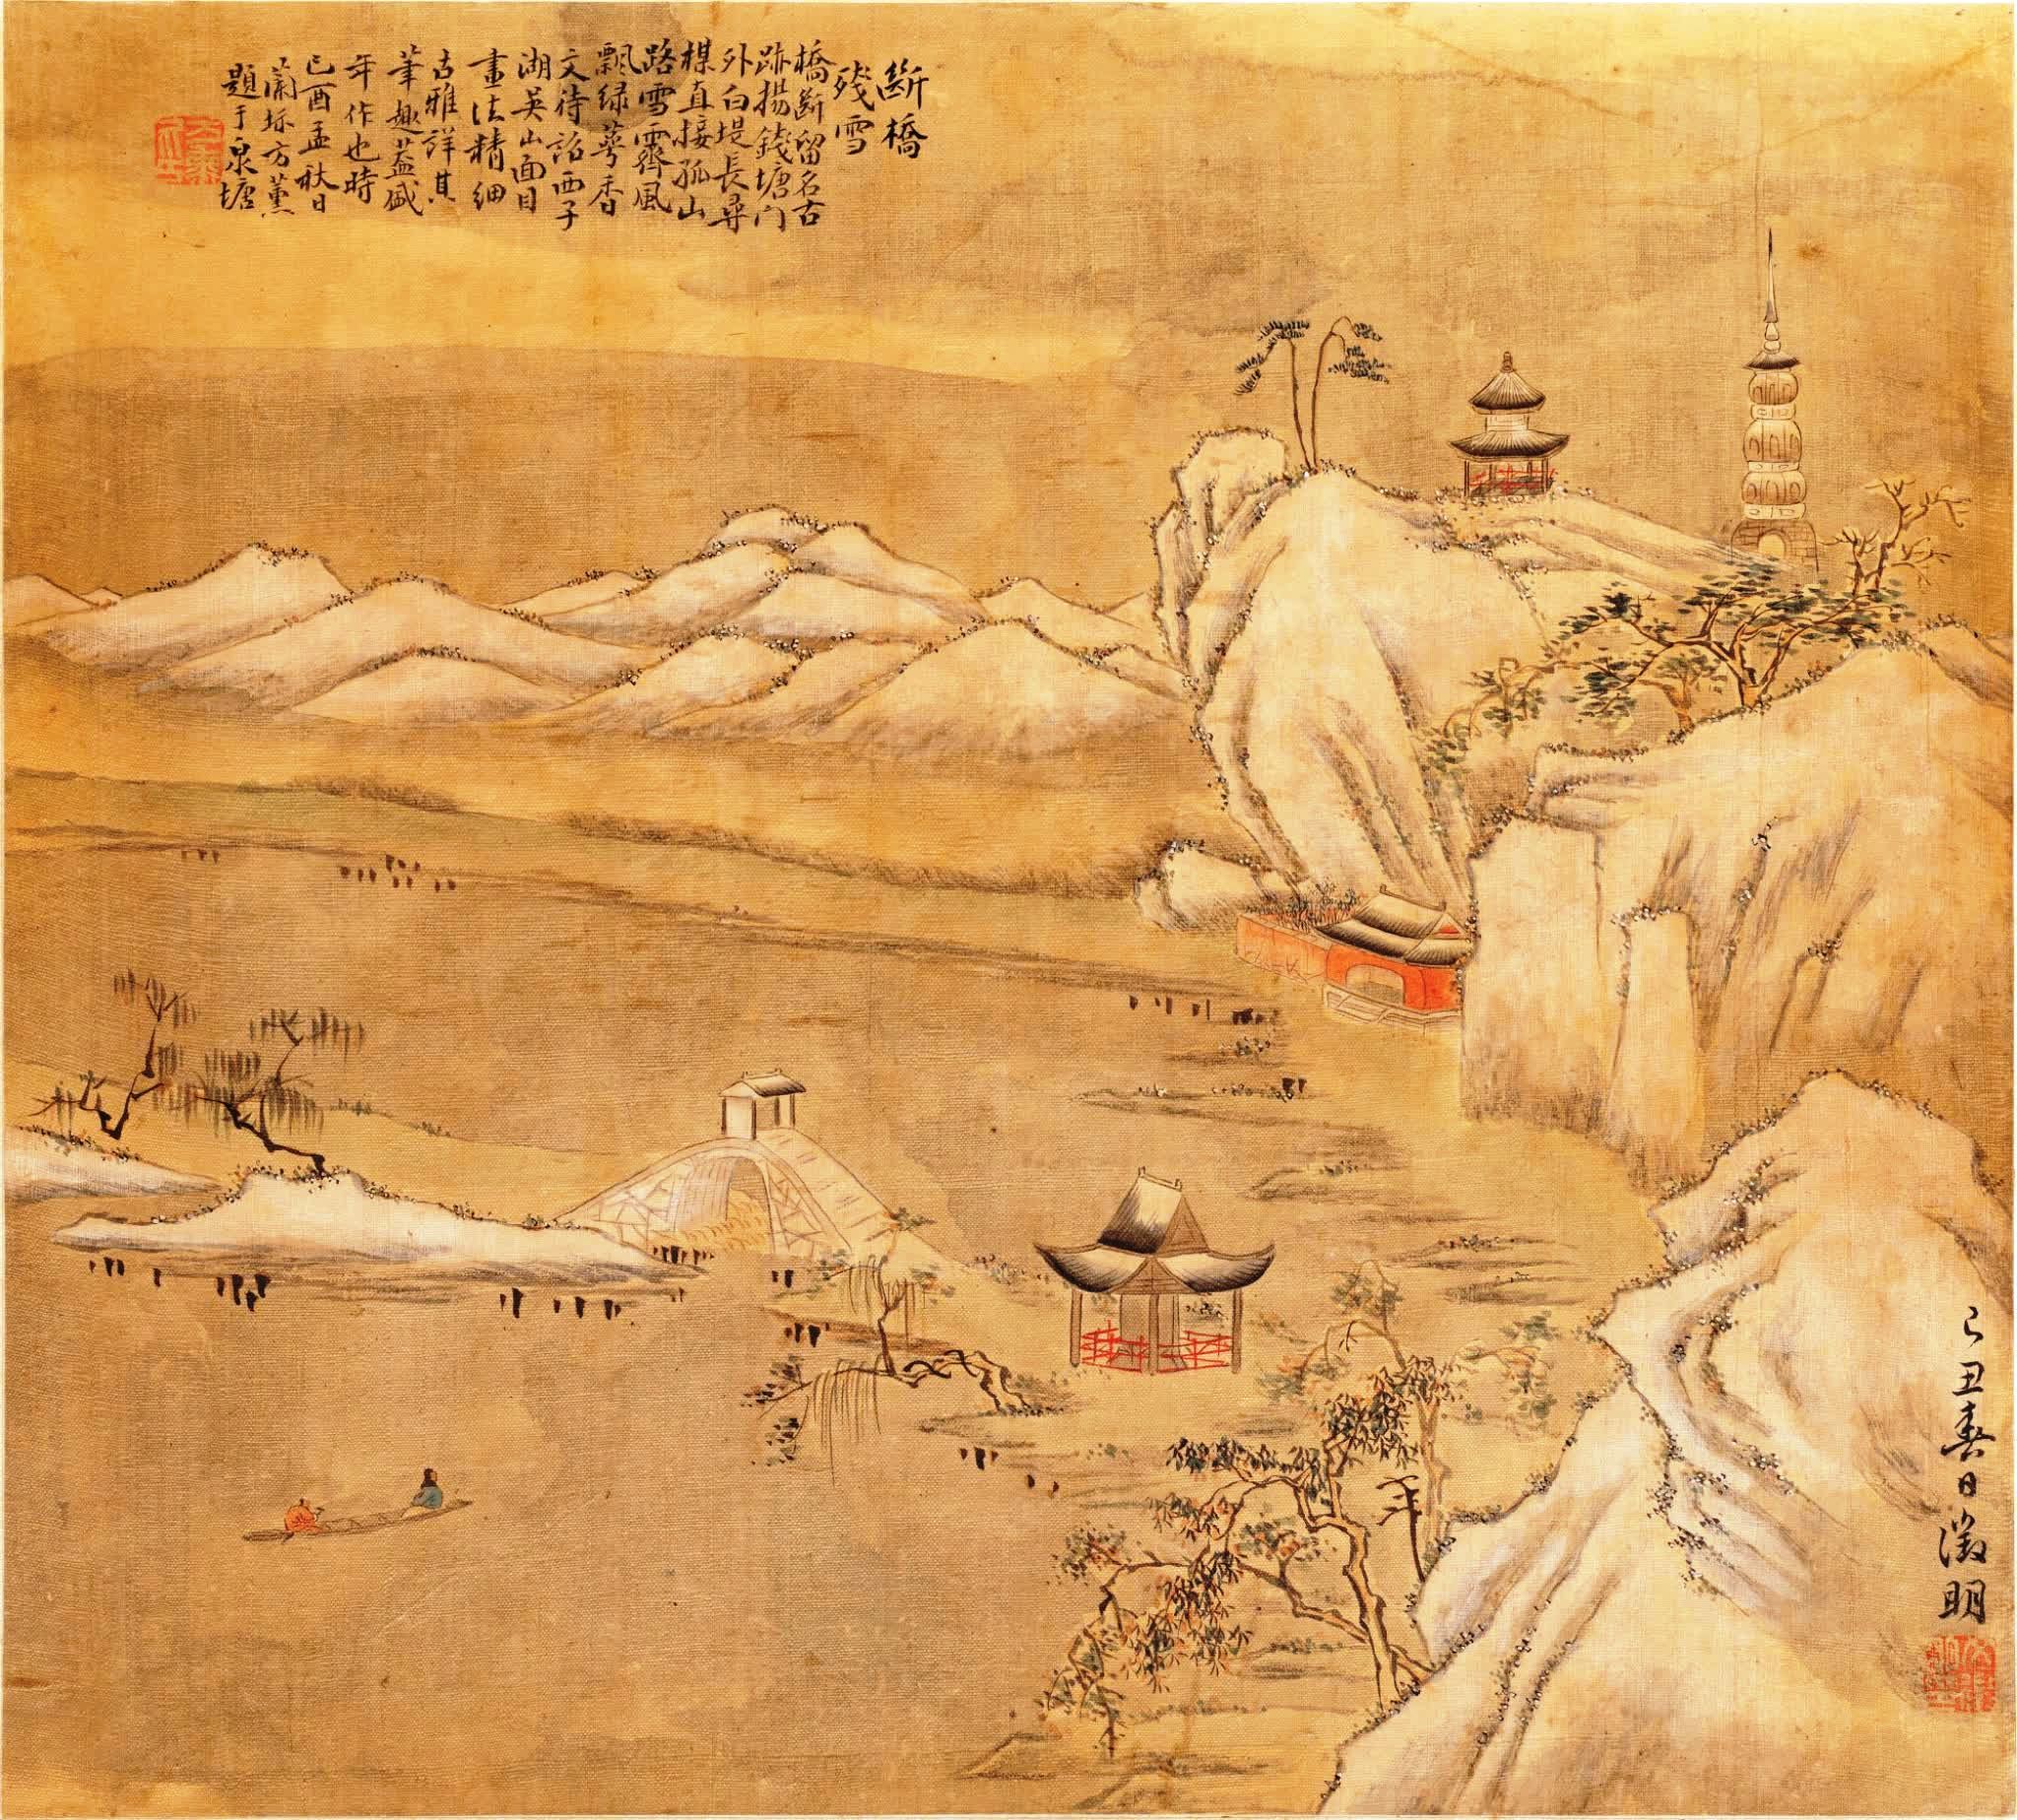 斷橋
殘雪
橋斷留名古
跡揚錢塘門
外白堤長尋
楳直接孤山
路雪霽風
飄緑萼香
文待詔西子
湖吳山面目
畫法精細
古雅詳其
筆趣蓋盛
年作也時
己酉孟秋日
蘭坻方薰
題于泉塘
己丑春日徵明